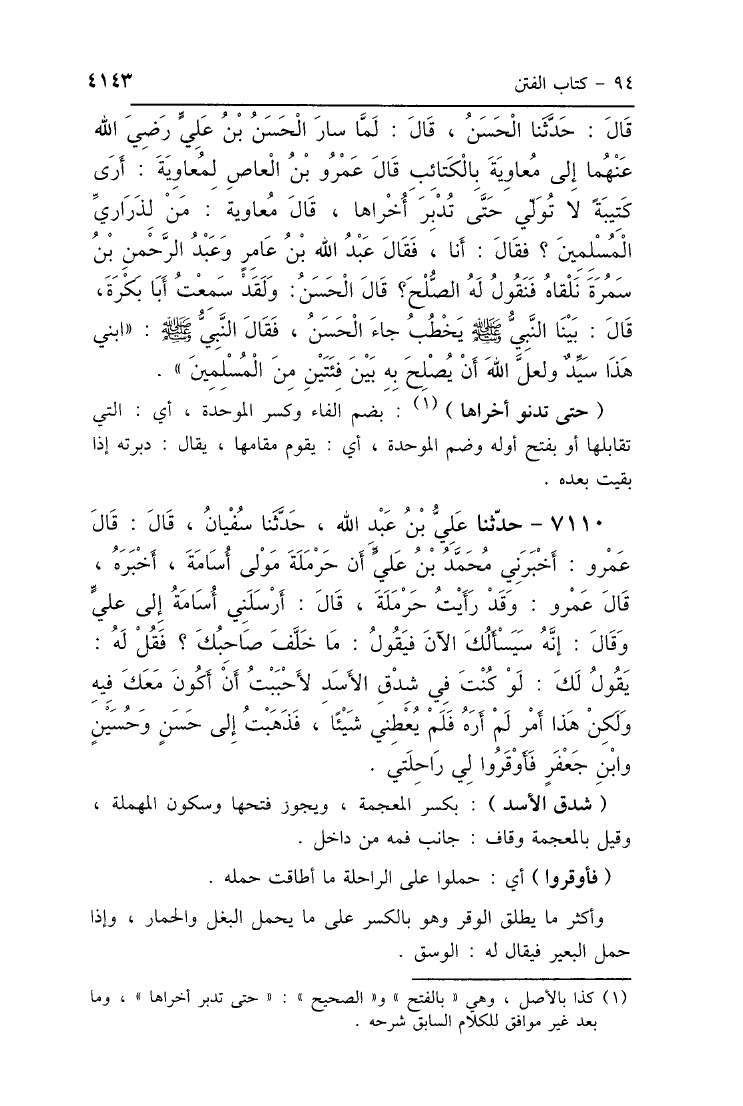 ٩٤ - كتاب الفتن
٤١٤٣
قَالَ : حَدَّثَنا الْحَسَنُ ، قَالَ : لَمَّا سارَ الْحَسَنُ بْنُ عَلِيٍّ رَضِيَ الله
عَنْهُما إلى مُعاوِيَةَ بِالْكَتائِبِ قَالَ عَمْرُو بْنُ الْعاصِ لِمُعاوِيَةَ : أَرَى
كَتِيبَةً لا تُوَلِّي حَتَّى تُدْبِرَ أُخْراها ، قَالَ مُعاوية : مَنْ لِذَرَارِيِّ
المُسْلِمينَ ؟ فقالَ : أنا ، فَقَالَ عَبْدُ الله بْنُ عَامِرٍ وَعَبْدُ الرَّحْمنِ بْنُ
سَمُرَةَ نَلْقاهُ فَنَقُولُ لَهُ الصُّلْحَ؟ قَالَ الْحَسَنُ: وَلَقَدْ سَمِعْتُ أَبَا بَكْرَةَ،
قَالَ : بَيْنَا النَّبِيُّ ﷺ يَخْطُبُ جاءَ الْحَسَنُ ، فَقَالَ النَّبِيُّ ﷺ : «ابني
هَذَا سَيِّدٌ ولعلَّ اللهَ أَنْ يُصْلِحَ بِهِ بَيْنَ فئَتَيْنِ مِنَ الْمُسْلِمِينَ » .
( حتى تدنو أخراها ) (١) : بضم الفاء وكسر الموحدة ، أي : التي
تقابلها أو بفتح أوله وضم الموحدة ، أي : يقوم مقامها ، يقال : دبرته إذا
بقيت بعده .
٧١١٠ - حدّثنا عَلِيُّ بْنُ عَبْدِ الله ، حَدَّثَنا سُفْيانُ ، قَالَ : قَالَ
عَمْرو : أَخْبَرَنِي مُحَمَّدُ بْنُ عَلِيٍّ أن حَرْمَلَةَ مَوْلى أُسَامَةَ ، أَخْبَرَهُ ،
قَالَ عَمْرو : وَقَدْ رَأَيْتُ حَرْمَلَةَ ، قَالَ : أَرْسَلَنِي أُسَامَةُ إلى عَلِيٍّ
وَقَالَ : إنَّهُ سَيَسْأَلُكَ الآنَ فَيَقُولُ : مَا خَلَّفَ صَاحِبُكَ ؟ فَقُلْ لَهُ :
يَقُولُ لَكَ : لَوْ كُنْتَ فِي شِدْقِ الأسَدِ لأَحْبَبْتُ أَنْ أَكُونَ مَعَكَ فِيهِ
وَلَكِنْ هَذا أمْر لَمْ أَرَهُ فَلَمْ يُعْطِني شَيْئًا ، فَذَهَبْتُ إلى حَسَنٍ وَحُسَيْنٍ
وابْنِ جَعْفَرٍ فَأَوْقَرُوا لِي رَاحِلَتي .
( شدق الأسد ) : بكسر المعجمة ، ويجوز فتحها وسكون المهملة ،
وقيل بالمعجمة وقاف : جانب فمه من داخل .
( فأوقروا ) أي : حملوا على الراحلة ما أطاقت حمله .
وأكثر ما يطلق الوقر وهو بالكسر على ما يحمل البغل والحمار ، وإذا
حمل البعير فيقال له : الوسق .
(١) كذا بالأصل ، وهي « بالفتح » و« الصحيح » : « حتى تدبر أخراها » ، وما
بعد غير موافق للكلام السابق شرحه .